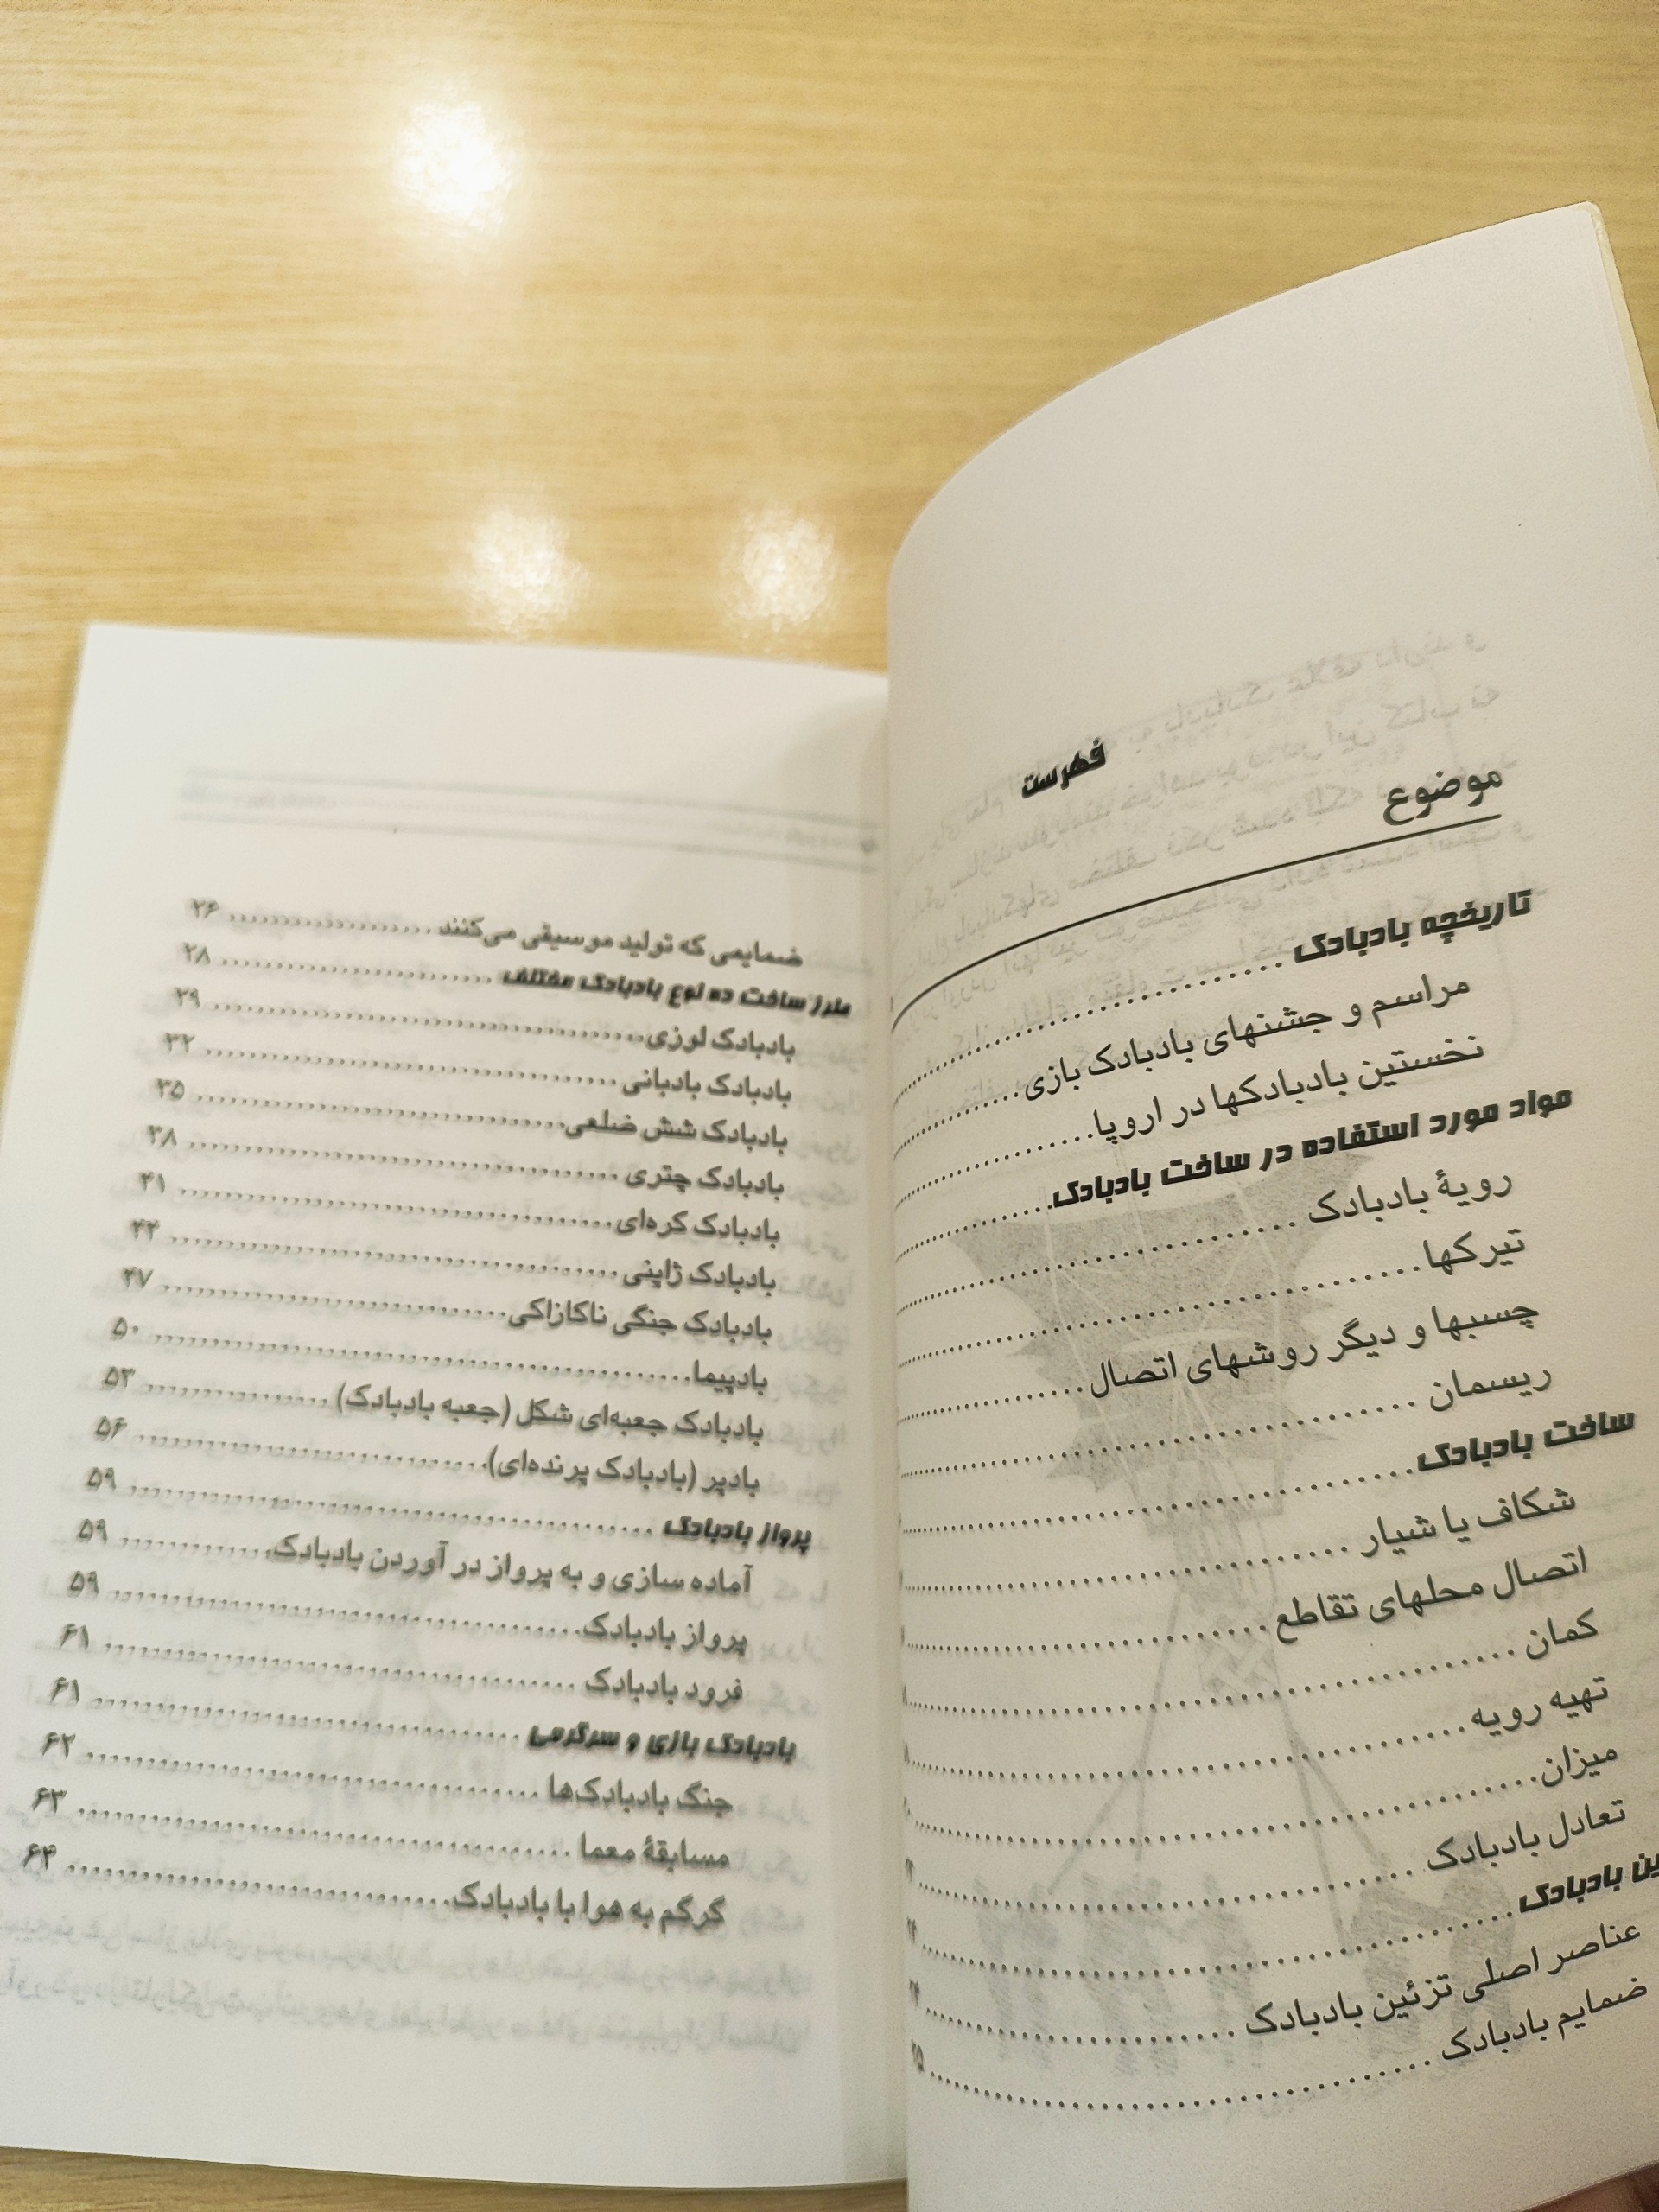 فهرست
موضوع
تاریخچه بادبادک
مراسم و جشنهای بادبادک بازی
نخستین بادبادکها در اروپا
مواد مورد استفاده در ساخت بادبادک
رویهٔ بادبادک
تیرکها
چسبها و دیگر روشهای اتصال
ریسمان
ساخت بادبادک
شکاف یا شیار
اتصال محلهای تقاطع
کمان
تهیه رویه
میزان
تعادل بادبادک
بادبادک
عناصر اصلی تزئین بادبادک
ضمایم بادبادک
ضمایمی که تولید موسیقی می‌کنند ۲۶
طرز ساخت ده نوع بادبادک مختلف ۲۸
بادبادک لوزی ۲۹
بادبادک بادبانی ۳۲
بادبادک شش ضلعی ۳۵
بادبادک چتری ۳۸
بادبادک کره‌ای ۴۱
بادبادک ژاپنی ۴۴
بادبادک جنگی ناکازاکی ۴۷
بادپیما ۵۰
بادبادک جعبه‌ای شکل (جعبه بادبادک) ۵۳
بادپر (بادبادک پرنده‌ای) ۵۶
پرواز بادبادک ۵۹
آماده سازی و به پرواز در آوردن بادبادک ۵۹
پرواز بادبادک ۵۹
فرود بادبادک ۶۱
بادبادک بازی و سرگرمی ۶۱
جنگ بادبادک‌ها ۶۲
مسابقهٔ معما ۶۳
گرگم به هوا با بادبادک ۶۴